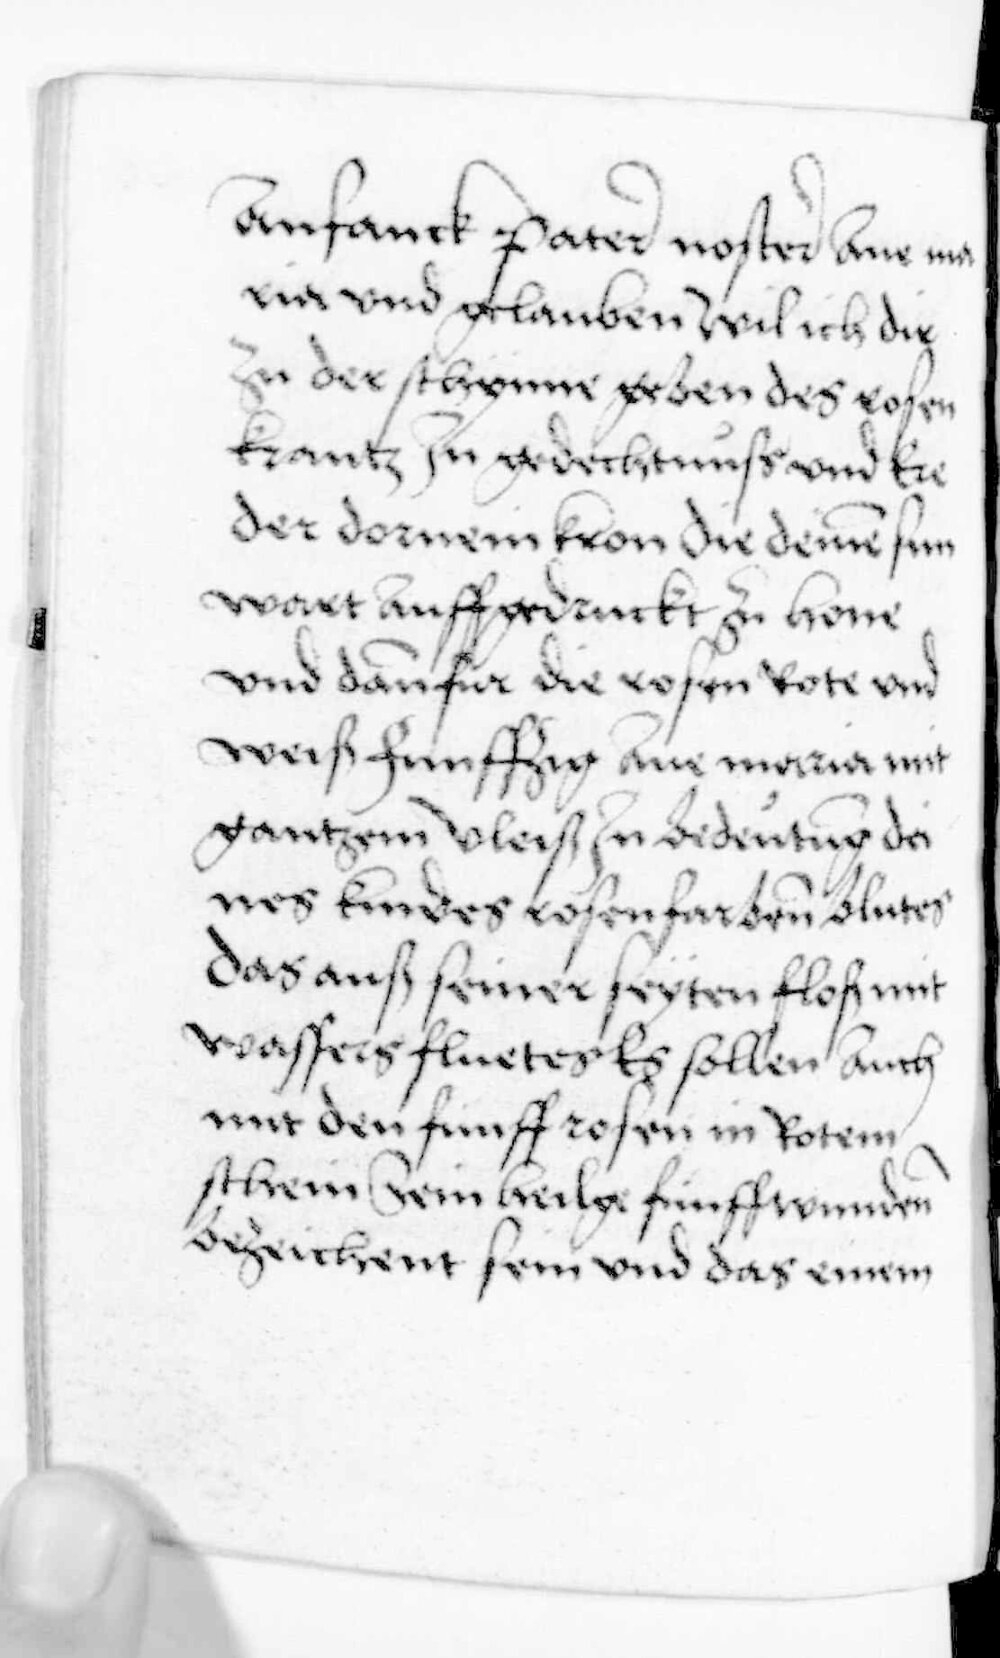 Anfanck Pater noster Aue ma
ria vnd gelauben wil ich dir
zu der schynne geben des rosen
krantz zu gedechtnuss vnd kre
der dornein kron die deinē sun
wart auffgedruckt zu hone
vnd dānfur die rosen Rote vnd
weiß funffzig Aue maria mit
gantzem vleiß zu bedeutūg dei
nes kindes rosenfarbenn̄ blutes
das auß seiner seyten floß mit
wassers fluetes Es sollen auch
mit den funff rosen in Rotem
schein Sein heilge funff wundenn̄
bezeichent sein vnd das einem